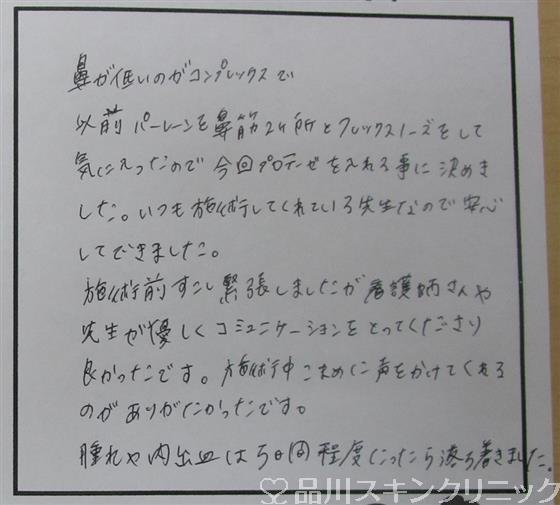 鼻が低いのがコンプレックスで
以前パーレーンを鼻筋2ヶ所とフレックスノーズをして
気に入ったので今回プロテーゼを入れる事に決めま
した。いつも施術してくれている先生なので安心
してできました。
施術前すこし緊張しましたが看護師さんや
先生が優しくコミュニケーションをとってくださり
良かったです。施術中こまめに声をかけてくれる
のがありがたかったです。
腫れや内出血は5日間程度たったら落ち着きました。
品川スキンクリニック